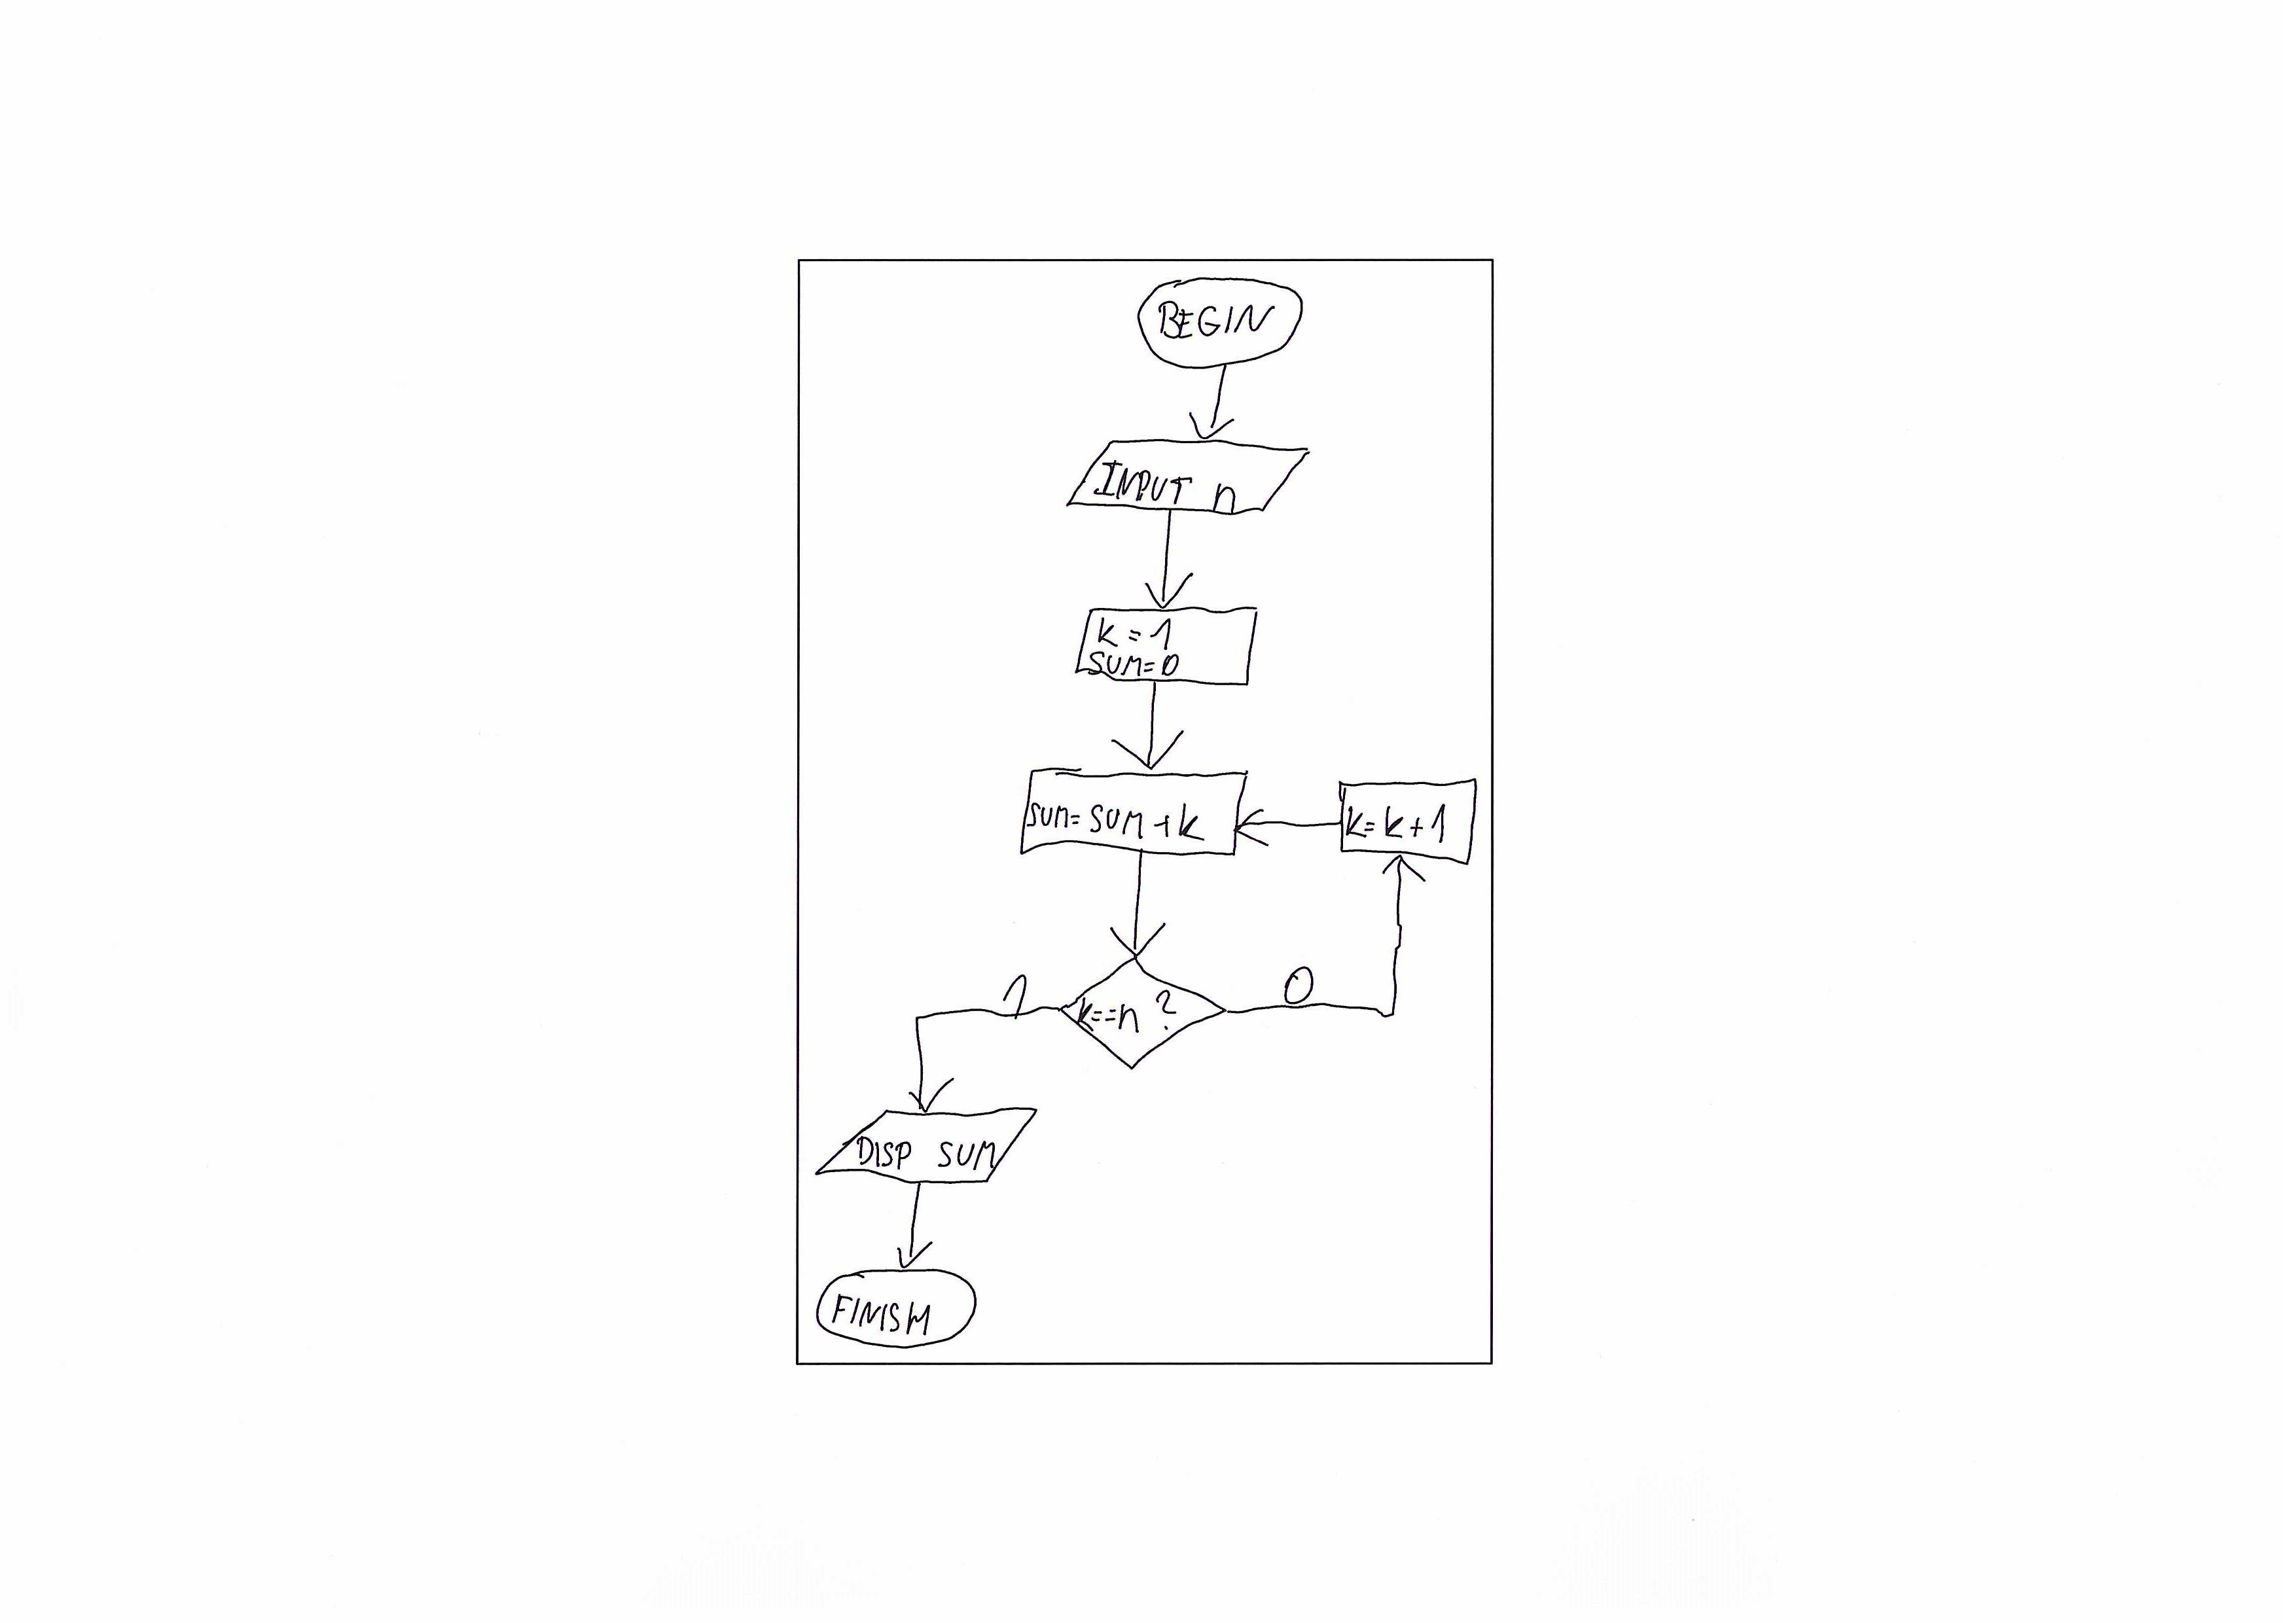 BEGIN
INPUT n
k = 1
SUM=0
SUM= SUM +k
k= k+1
1
k==n ?
0
DISP SUM
FINISH